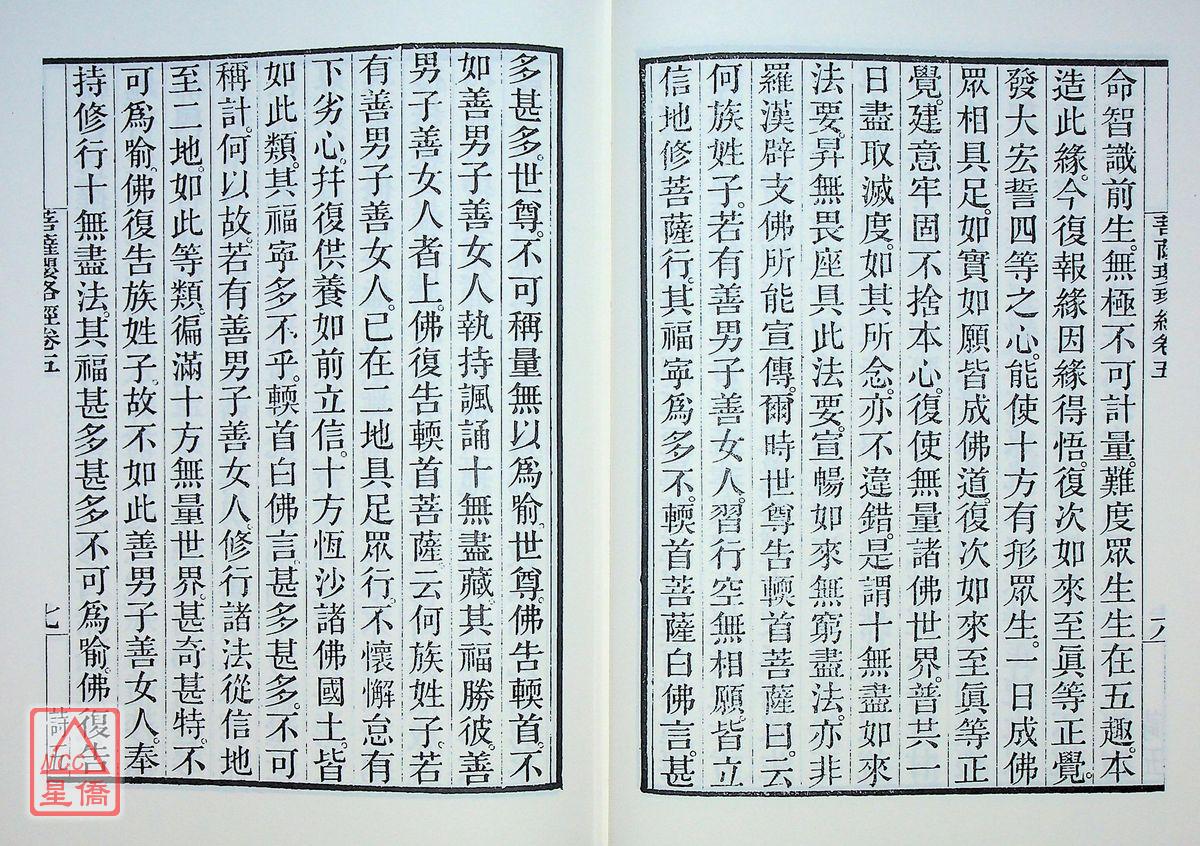 菩薩瓔珞經卷五
八
命智識前生。無極不可計量。難度眾生生在五趣。本
造此緣。今復報緣因緣得悟。復次如來至眞等正覺。
發大宏誓四等之心。能使十方有形眾生。一日成佛
眾相具足。如實如願皆成佛道。復次如來至眞等正
覺。建意牢固不捨本心。復使無量諸佛世界。普共一
日盡取滅度。如其所念。亦不違錯。是謂十無盡如來
法要。昇無畏座具此法要。宣暢如來無窮盡法。亦非
羅漢辟支佛所能宣傳。爾時世尊告輭首菩薩曰。云
何族姓子。若有善男子善女人。習行空無相願。皆立
信地修菩薩行。其福寧爲多不。輭首菩薩白佛言。甚
多甚多。世尊。不可稱量無以爲喻。世尊。佛告輭首。不
如善男子善女人執持諷誦十無盡藏。其福勝彼。善
男子善女人者上。佛復告輭首菩薩。云何族姓子。若
有善男子善女人。已在二地具足眾行。不懷懈怠有
下劣心。幷復供養如前立信。十方恆沙諸佛國土。皆
如此類。其福寧多不乎。輭首白佛言。甚多甚多。不可
稱計。何以故。若有善男子善女人。修行諸法從信地
至二地。如此等類。徧滿十方無量世界。甚奇甚特。不
可爲喻。佛復告族姓子。故不如此善男子善女人。奉
持修行十無盡法。其福甚多甚多不可爲喻。佛復告
菩薩瓔珞經卷五
七
詩五
JLCC
星僑